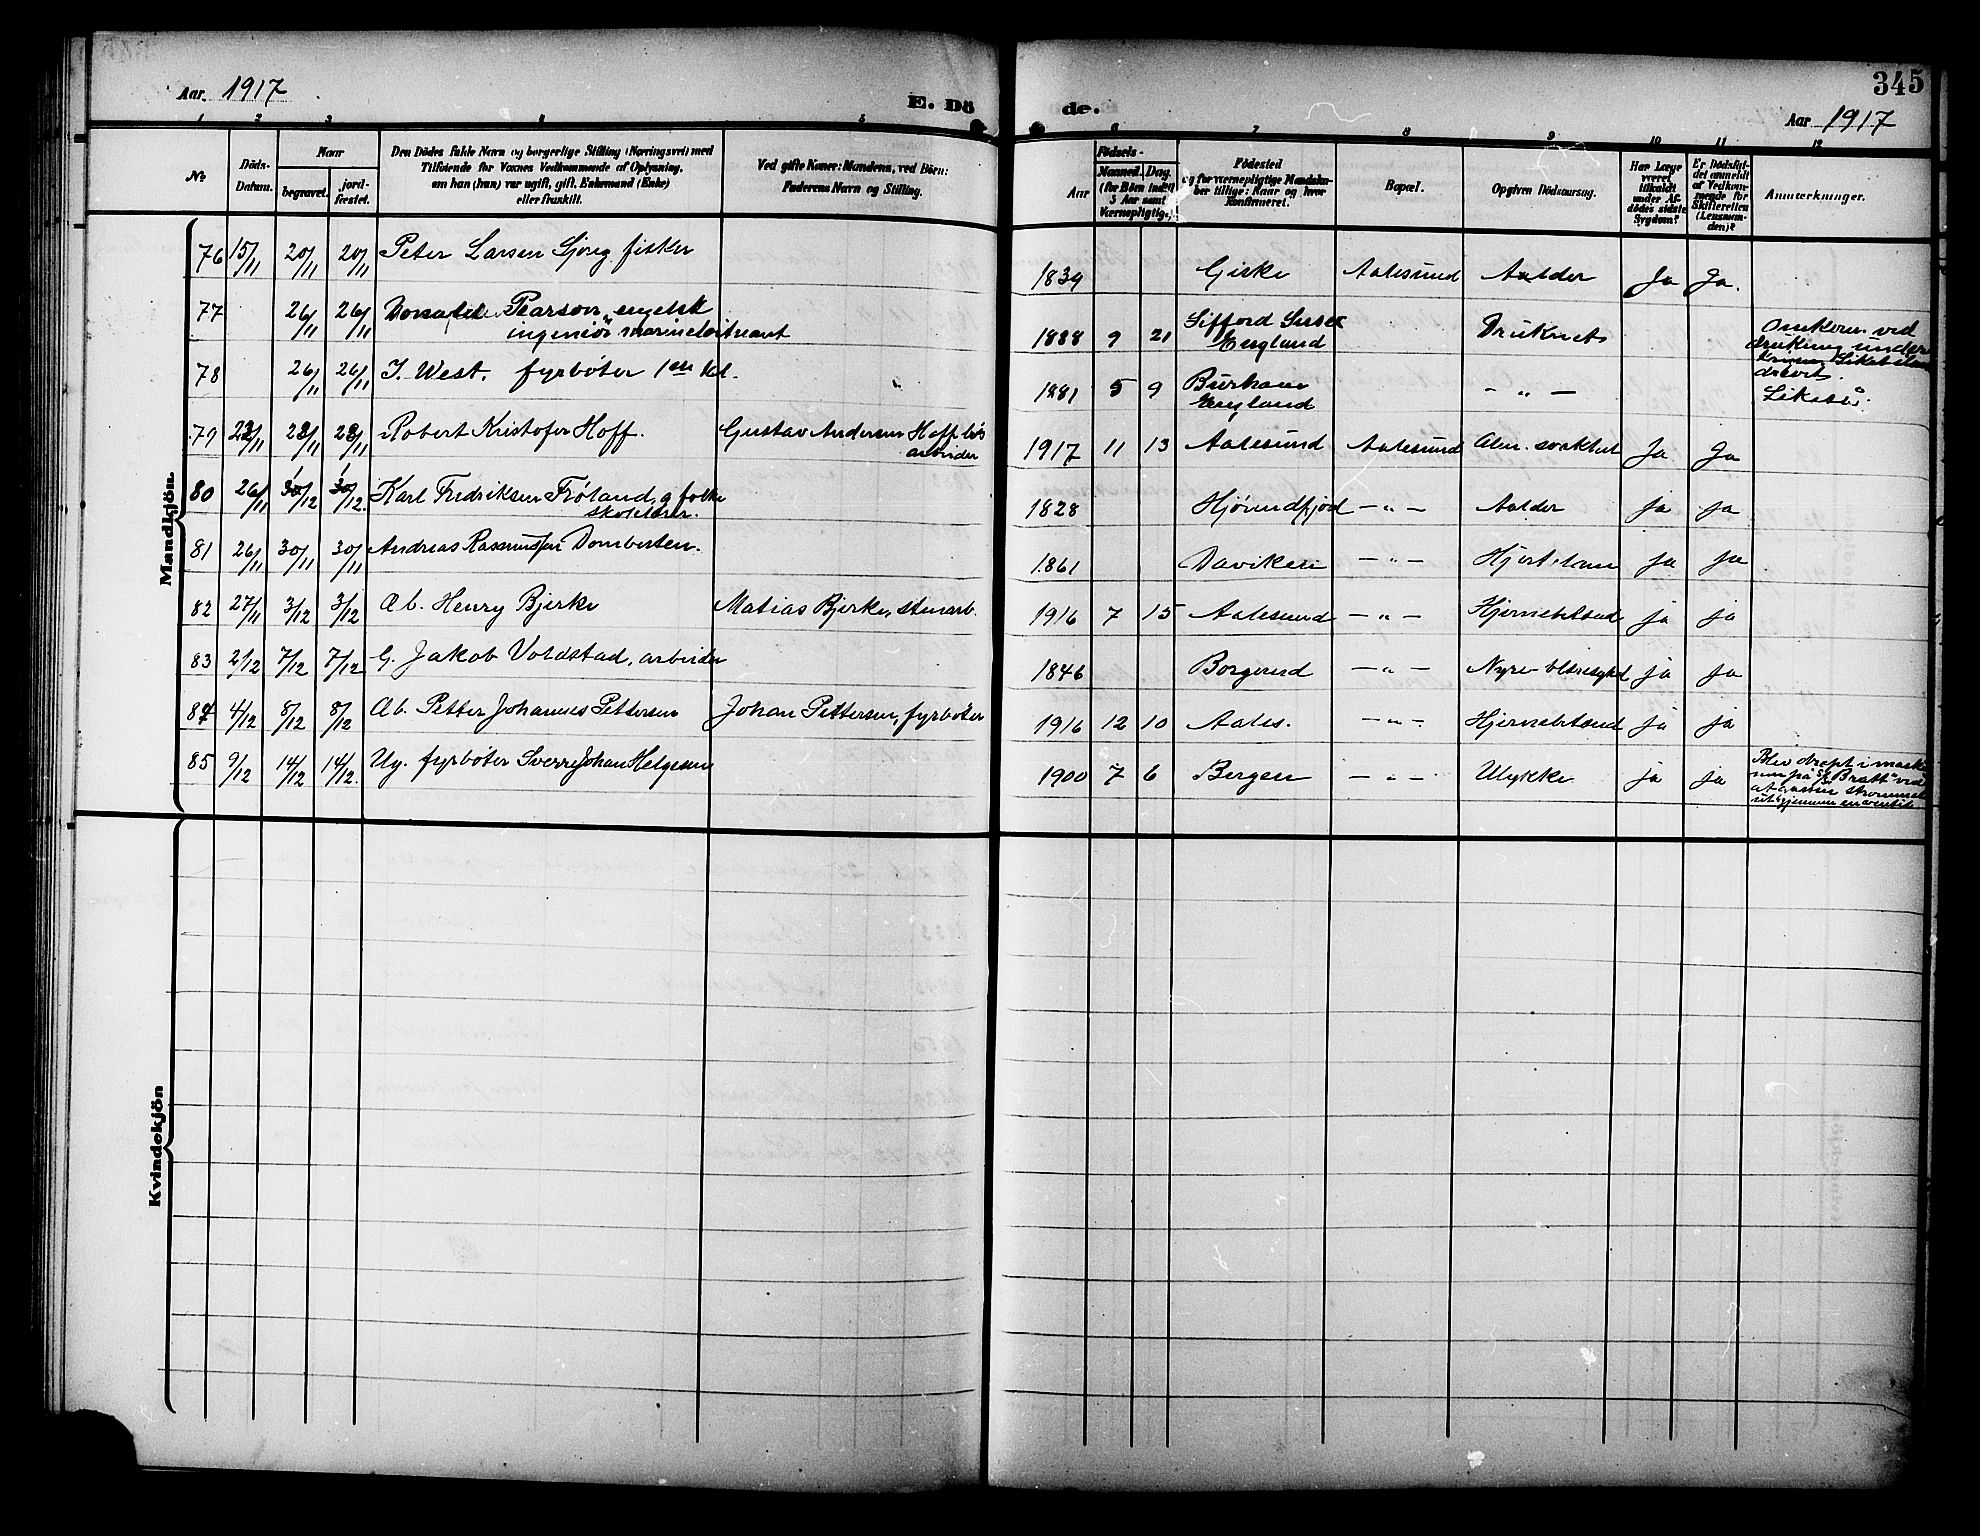 345
Aar. 1917
E. Dö
de.
Aar 1917
1 2 3 4 5 6 7 8 9 10 11 12
No
Döds-
Datum.
Naar
begravet.
jord-
fæstet.
Den Dödes fulde Navn og borgerlige Stilling (Næringsvei) med
Tilföiende for Voxnes Vedkommende af Oplysning,
om han (hun) var ugift, gift, Enkemand (Enke)
eller fraskilt.
Ved gifte Koner: Mandens, ved Börn:
Faderens Navn og Stilling.
Födsels-
Aar
Maaned. Dag.
(for Börn indtil
3 Aar samt
Værnepligtige).
Födested
og for værnepligtige Mandskaber
tillige: Naar og hvor
Konfirmeret.
Bopæl.
Opgiven Dödsaarsag.
Har Læge
været
tilkaldt
under Af-
dödes sidste
Sygdom?
Er Dödsfal-
det anmeldt
af Vedkom-
mende for
Skifteretten
(Lensman-
den)?
Anmærkninger.
Mandkjön.
76 15/11 20/11 20/11 Peter Larsen Sjong fisker 1839 Giske Aalesund Aalder Ja Ja.
77 26/11 26/11 Pearson, engelsk
ingeniør marineløitnant 1888 9 21 England Druknet Omkom ved
drukning under
78 26/11 26/11 J. West. fyrbøter 1en kl. 1881 5 9 England - " -
79 23/11 28/11 28/11 Robert Kristofer Hoff. Gustav Andersen Hoff løs
arbeider 1917 11 13 Aalesund Aalesund Alm. svakhet Ja Ja
80 26/11 3/12 3/12. Karl Fredriksen Frøland, g folke
skolelærer. 1828 Hjørundfjord - " - Aalder ja ja
81 26/11 30/11 30/11 Andreas Rasmussen Dombesten. 1861 Daviken - " - Hjertelam ja ja
82 27/11 3/12 3/12 Æ b. Henry Bjerke Matias Bjerke, stenarb. 1916 7 15 Aalesund - " - Hjernebetænd ja ja
83 2/12 7/12 7/12 G. Jakob Voldstad, arbeider 1846 Borgund - " - ja ja
84 4/12 8/12 8/12 Æ b. Petter Johannes Pettersen Johan Pettersen, fyrbøter 1916 12 10 Aales. - " - Hjernebetænd ja ja
85 9/12 14/12 14/12. Ug. fyrbøter Sverre Johan Helgesen 1900 7 6 Bergen - " - Ulykke ja ja Blev dræpt i maski
nen på S/S "Bratt" ved
at dampen strømmet
ut gjennem en ventil
Kvindekjön